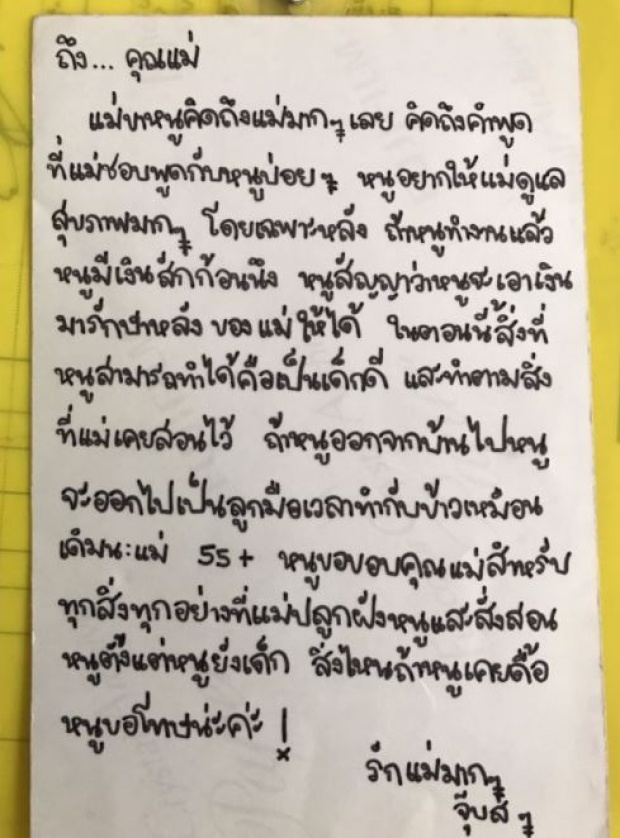 ถึง... คุณแม่
แม่ขาหนูคิดถึงแม่มากๆเลย คิดถึงคำพูด
ที่แม่ชอบพูดกับหนูบ่อยๆ หนูอยากให้แม่ดูแล
สุขภาพมากๆ โดยเฉพาะหลัง ถ้าหนูทำงานแล้ว
หนูมีเงินสักก้อนนึง หนูสัญญาว่าหนูจะเอาเงิน
มารักษาหลังของแม่ให้ได้ ในตอนนี้สิ่งที่
หนูสามารถทำได้คือเป็นเด็กดี และทำตามสิ่ง
ที่แม่เคยสอนไว้ ถ้าหนูออกจากบ้านไปหนู
จะออกไปเป็นลูกมือเวลาทำกับข้าวเหมือน
เดิมนะแม่ 55+ หนูขอขอบคุณแม่สำหรับ
ทุกสิ่งทุกอย่างที่แม่ปลูกฝังหนูและสั่งสอน
หนูตั้งแต่หนูยังเด็ก สิ่งไหนถ้าหนูเคยดื้อ
หนูขอโทษน่ะค่ะ !
รักแม่มากๆ
จุ๊บส์ๆ